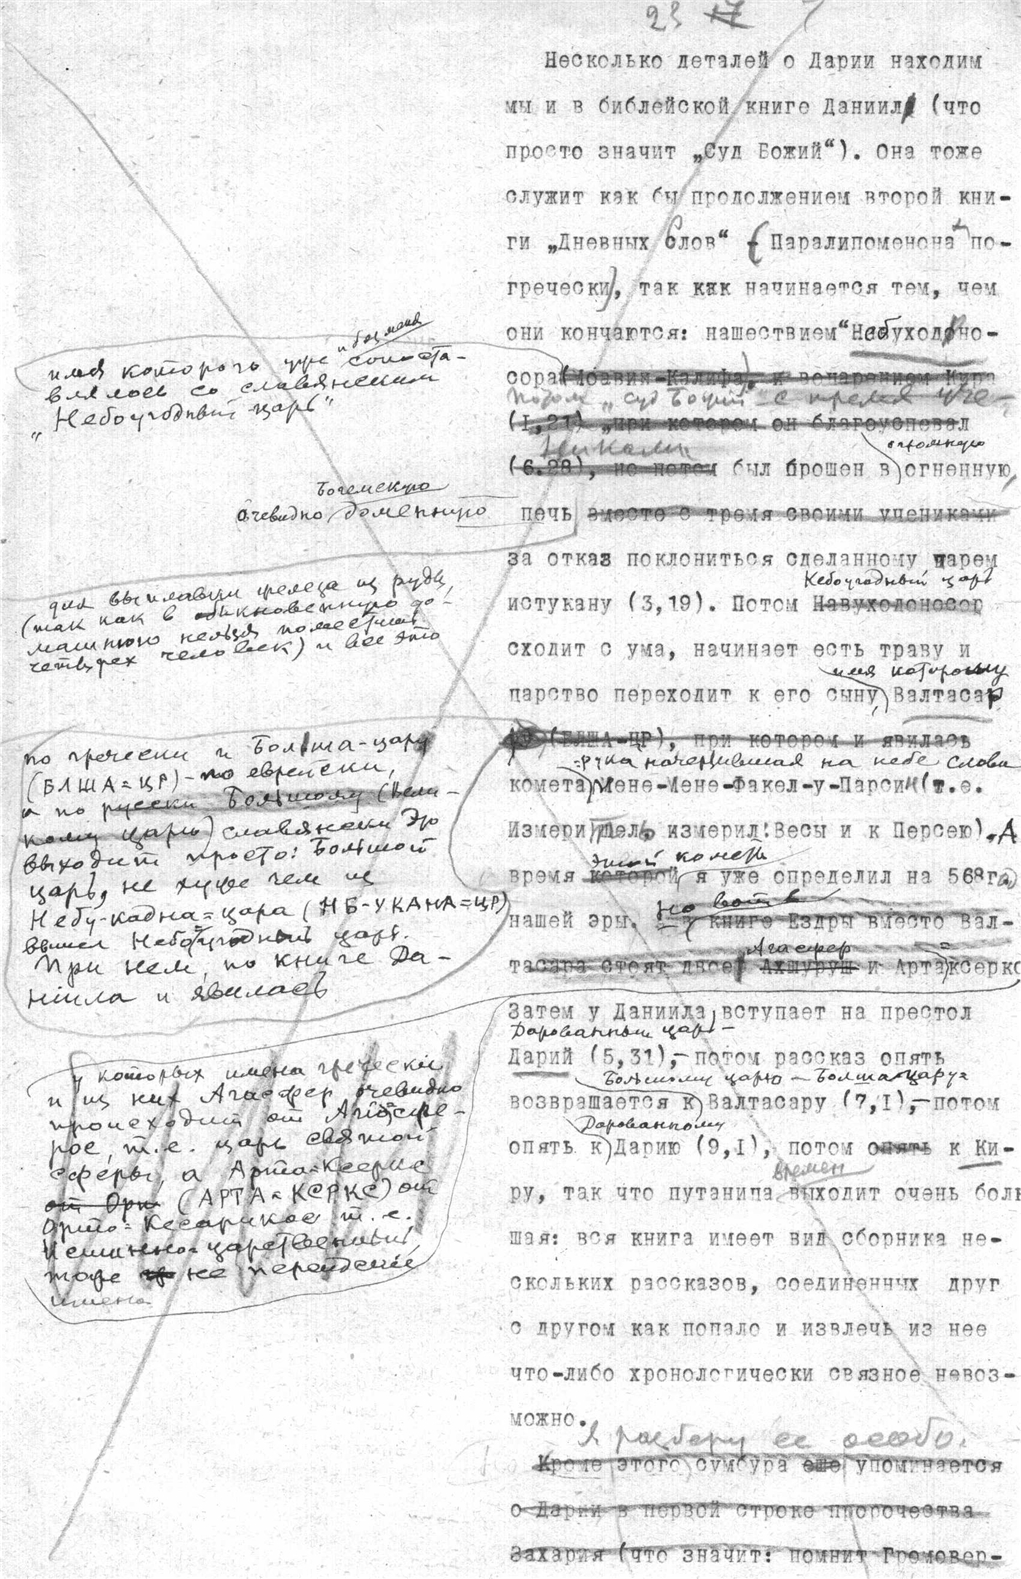 23 17
Несколько деталей о Дарии находим
мы и в библейской книге Даниил (что
просто значит „Суд Божий“). Она тоже
служит как бы продолжением второй кни-
ги „Дневных Слов“ (Паралипоменона по-
гречески), так как начинается тем, чем
они кончаются: нашествием "Небуходно-
сора (Моавия-Калифа), и воцарением Кира
потом „суд Божий“ с тремя уче-
(1,21) „при котором он благоуспевал
никами
огромную
(6.28), но потом был брошен в огненную,
печь вместе с тремя своими учениками
за отказ поклониться сделанному царем
Небоугодный царь
истукану (3,19). Потом Навуходоносор
сходит с ума, начинает есть траву и
имя которому
царство переходит к его сыну, Валтасар
(БЛША-ЦР), при котором и явилась
=рука начертившая на небе слова
комета Мене-Мене-Факел-у-Парсин (т.е.
Измеритель измерил! Весы и к Персею). А
этой кометы
время которой я уже определил на 568 г
нашей эры. Но вот в книге Ездры вместо Вал-
Агасфер
тасара стоят двое Ахшуруш и Артаксеркс
Затем у Даниила вступает на престол
Дарованный царь-
Дарий (5,31),- потом рассказ опять
Большому царю - Болша-цару=
возвращается к Валтасару (7,1),- потом
Дарованному
опять к Дарию (9,1), потом опять к Ки-
времен
ру, так что путаница выходит очень боль
шая: вся книга имеет вид сборника не-
скольких рассказов, соединенных друг
с другом как попало и извлечь из нее
что-либо хронологически связное невоз-
можно.
Я разберу ее особо.
Кроме этого сумбура еще упоминается
о Дарии в первой строке пророчества
Захария (что значит: помнит Громовер-
имя которого уже и без меня сопоста-
влялось со славянским
„Небоугодный царь“
Богемскую
очевидно доменную
для выплавки железа из руды,
(так как в обыкновенную до-
машнюю нельзя поместить
четырех человек) и все это
по гречески и Болша-цар
(БЛША=ЦР)-по еврейски,
а по русски Большому (Вели-
кому царю) славянски Это
выходит просто: Большой
царь, не хуже чем из
Небу-кадна=цара (НБ-УКАНА=ЦР)
вышел Небоугодный царь.
При нем, по книге Да-
ниила и явилась
у которых имена гречески
и из них Агасфер очевидно
происходит от Агиосфе-
рос, т.е. царь святой
сферы, а Арта=Ксеркс
от Орт (АРТА=КСРКС) от
Орто=Кесарикос т.е.
Истинно=царственный,
тоже не персидские
имена